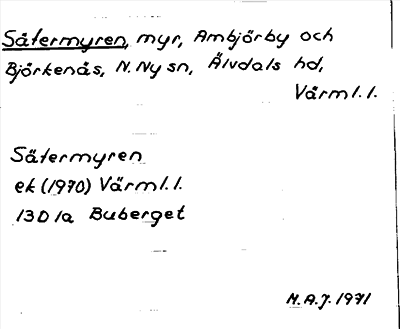 Sätermyren, myr, Ambjörby och
Björkenäs, N. Ny sn, Älvdals hd,
Värml. l.
Sätermyren
ek (1970) Värml. l.
13D 1a Buberget
N.A.J. 1971